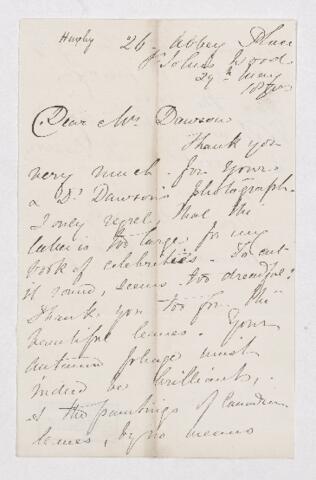 Huxley
26. Abbey Place
St John's Wood
29th May
1870
Dear Mrs Dawson
Thank you
very much for yours
& Dr Dawson's photograph.
I only regret that the
latter is too large for my
book of celebrities. To cut
it round, seems too dreadful!
Thank you too for the
beautiful leaves. Your
autumn foliage must
indeed be brilliant,
if the paintings of Canadian
leaves, by no means